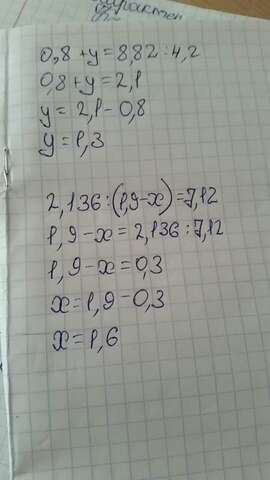 0,8 + y = 8,82 : 4,2
0,8 + y = 2,1
y = 2,1 - 0,8
y = 1,3
2,136 : (1,9 - x) = 7,12
1,9 - x = 2,136 : 7,12
1,9 - x = 0,3
x = 1,9 - 0,3
x = 1,6